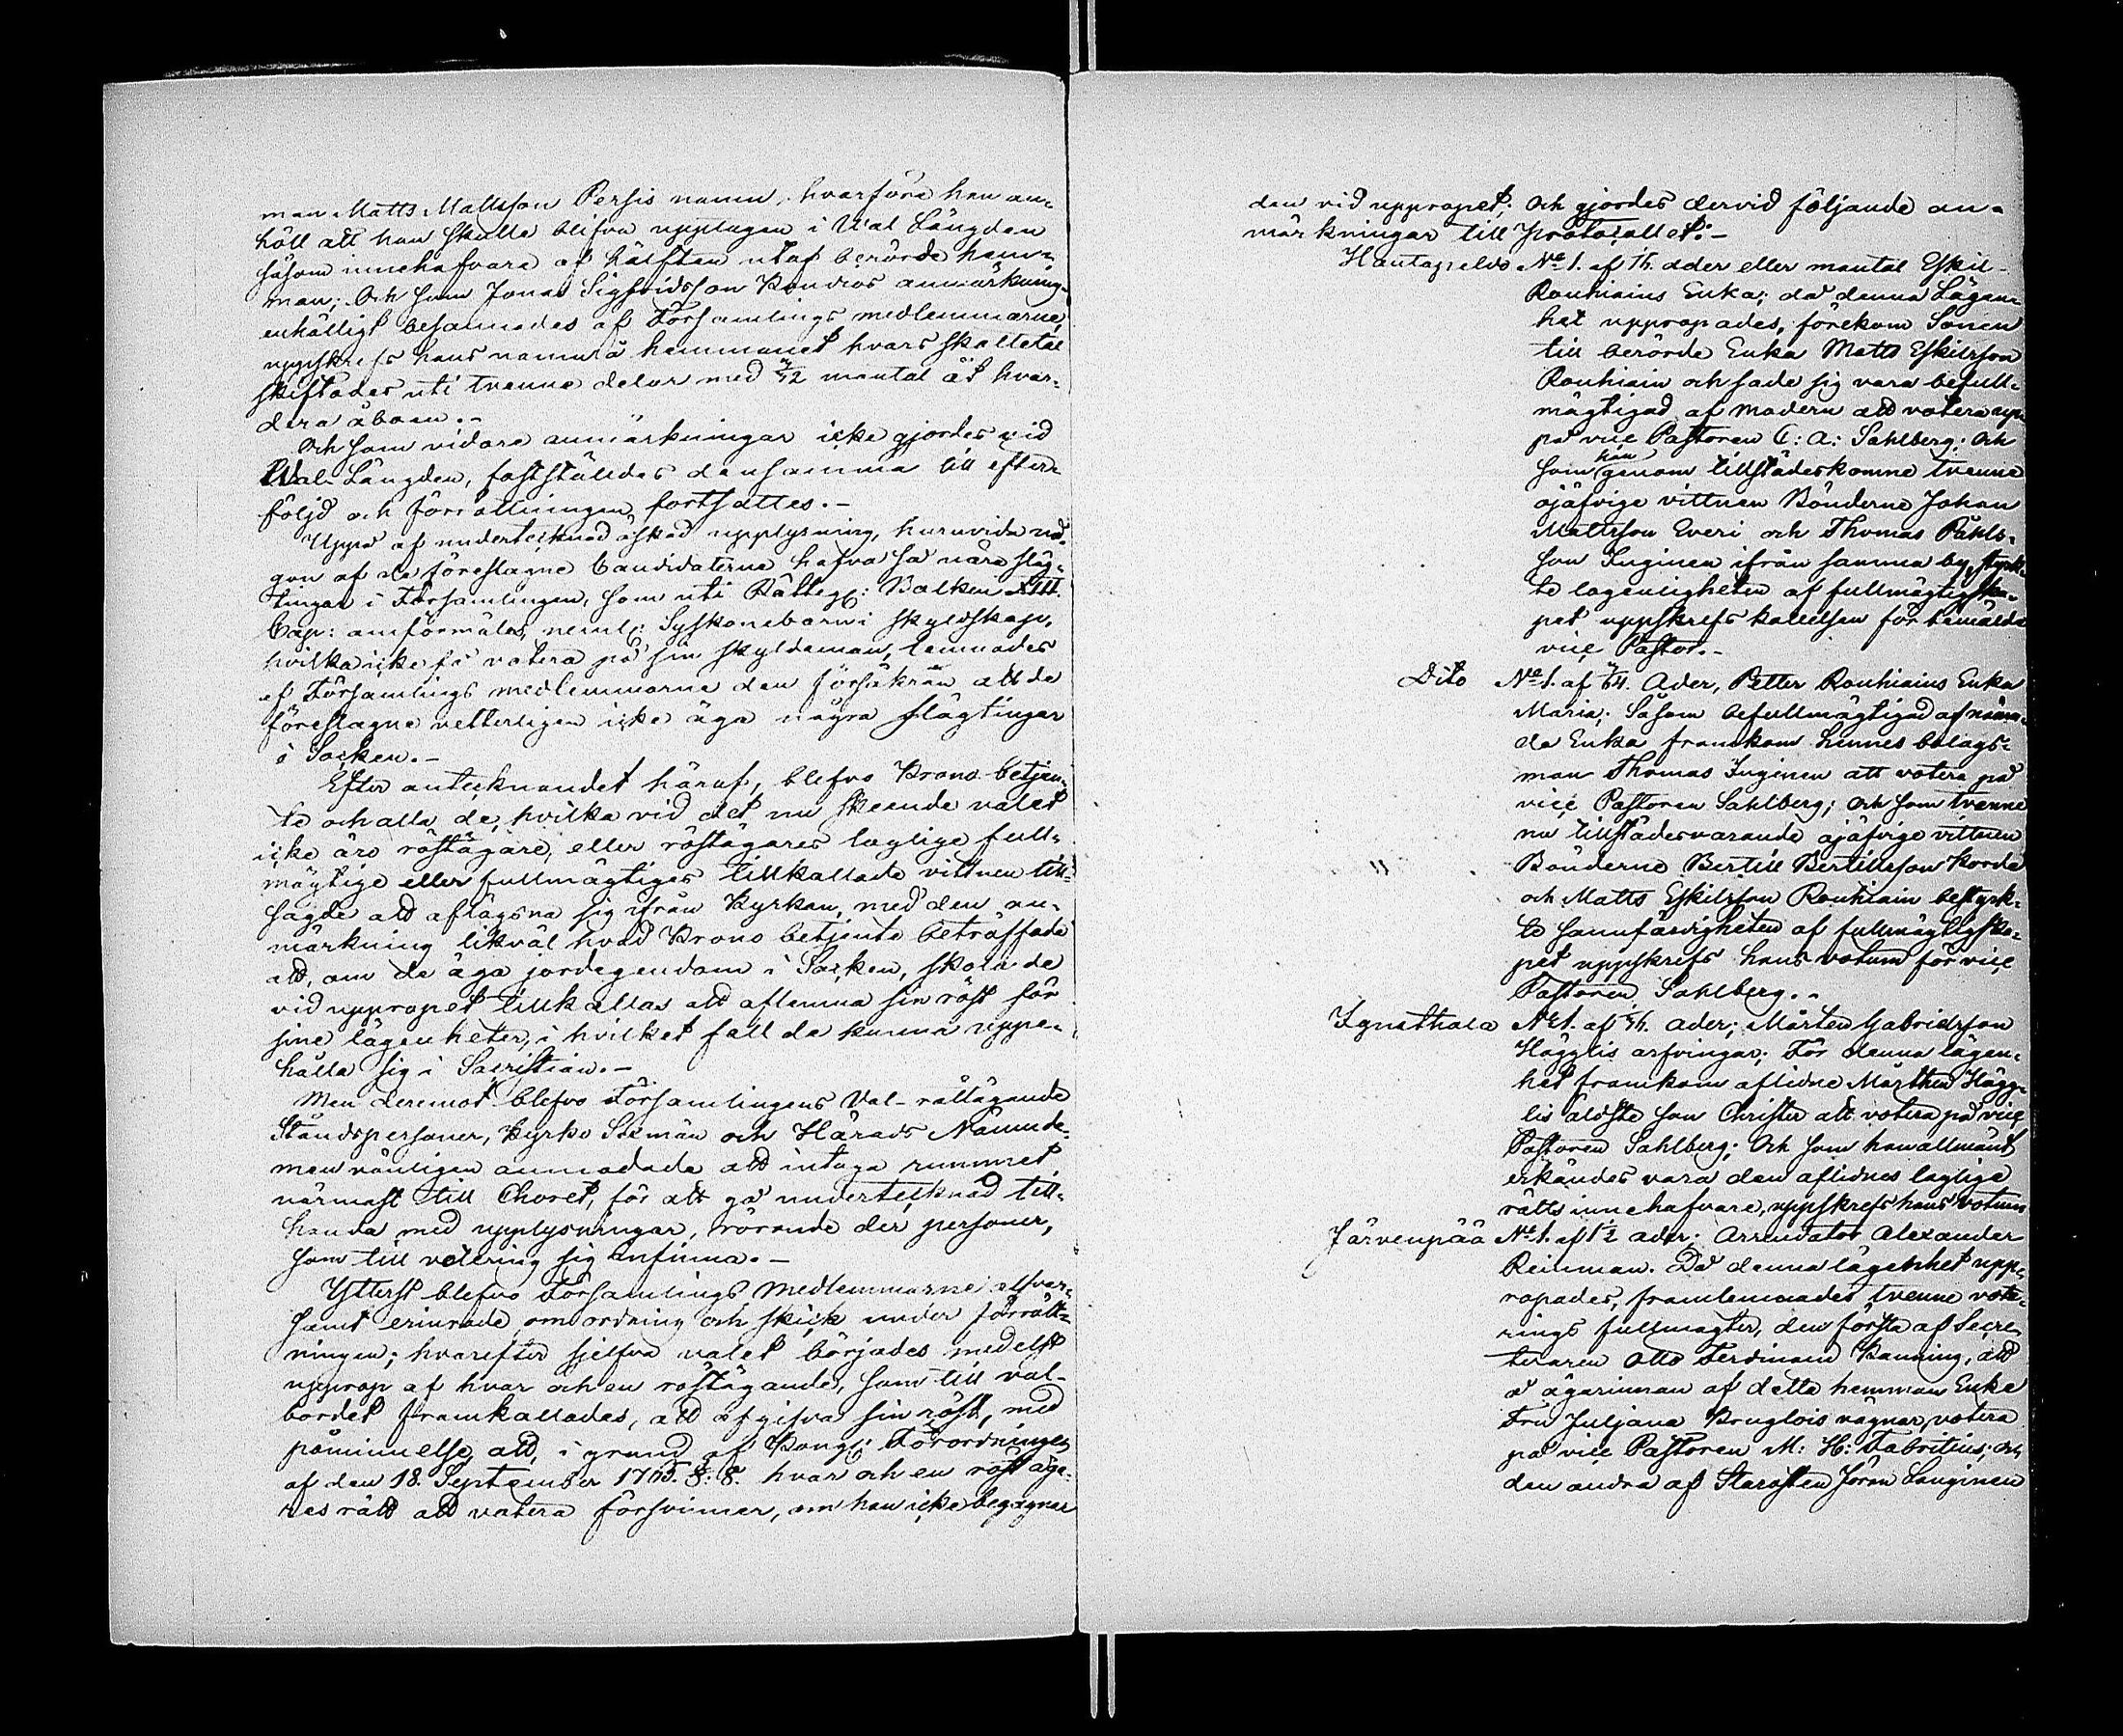 man Matts Mattsson Persis namn, hvarföre han an-
höll att han skulle blifva upptagen i Wal Längden
såsom innehafvare af hälften utaf berörde hem-
man; Och som Jonas Sigfridsson Kondios anmärkning
enhälligt besannades af Församlings medlemmarne,
uppskrefs hans namn å hemmanet hvars skattetal
skiftades uti tvenne delar med 1/12 mantal åt hvar-
dera åboen.-
Och som vidare anmärkningar icke gjordes vid
Wal-Längden, fastställdes densamma till efter-
följd och förrättningen fortsattes.-
Uppå af undertecknad äskad upplysning, huruvida nå-
gon af de föreslagne Candidaterne hafva så nära släg-
tingar i Församlingen, som uti Rätteg: Balken XIII.
Cap: omförmäles, neml: Syskonebarn i skyldskap,
hvilka icke få votera på sin skyldeman, lemnades
af Församlings medlemmarne den försäkran att de
föreslagne vetterligen icke äga några slägtingar
i Socken.-
Efter antecknandet häraf, blefvo Krono betjen-
te och alla de, hvilka vid det nu skeende valet
icke äro röstägare, eller röstägares laglige full-
mägtige eller fullmägtiges tillkallade vittnen till-
sagde att aflägsna sig ifrån Kyrkan, med den an-
märkning likväl hvad Krono betjente beträffade
att, om de äga jordegendom i Socken, skola de
vid uppropet tillkallas att aflemna sin röst för
sine lägenheter, i hvilket fall de kunna uppe-
hålla sig i Sacristian.-
Men deremot blefvo Församlingens Val-rättägande
Ståndspersoner, Kyrko Sexmän och Härads Nämnde-
män vänligen anmodade att intaga rummet
närmast till Choret, för att gå undertecknad till-
handa med upplysningar, rörande der personer,
som till votering sig infinna.-
Ytterst blefvo Församlings medlemmarne allvar-
samt erinrade om ordning och skick under förrätt-
ningen; hvarefter sjelfva valet börjades medelst
upprop af hvar och en röstägande, som till val-
bordet framkallades, att afgifva sin röst, med
påminnelse, att, i grund af Kongl: Förordningen
af den 18. September 1765. §: 8. hvar och en röstäga-
res rätt att votera försvinner, om han icke begagnar
den vid uppropet; Och gjordes dervid följande an-
märkningar till Protocollet:-
Hautapeldo No 1. af 1/6. ader eller mantal Eskil
Rouhiains Enka; då denna Lägen-
het uppropades, förekom Sonen
till berörde Enka Matts Eskilsson
Rouhiain och sade sig vara befull-
mägtigad af modern att votera upp-
på vice Pastoren C: A: Sahlberg; Och
som han genom tillstädeskomne tvenne
ojäfvige vittnen Bönderne Johan
Mattsson Everi och Thomas Påhls-
son Inginen ifrån samma by, styrk-
te lagenligheten af fullmägtigska-
pet uppskrefs kallelsen för bemälde
vice Pastor.-
Dito No 1. af 1/64. Ader, Petter Rouhiains Enka
Maria; Såsom befullmägtigad af nämn-
de Enka framkom hennes bolags-
man Thomas Inginen att votera på
vice Pastoren Sahlberg; och som tvenne
nu tillstädesvarande ojäfvige vittnen
Bönderne Bertill Bertillsson Korda
och Matts Eskilsson Rouhiain bestyrk-
te sannfärdigheten af fullmägtigska-
pet uppskrefs hans votum för vice
Pastoren Sahlberg.-
Ignathala No 1. af 1/6. ader; Mårten Gabrielsson
Hägglis arfvingar; För denna lägen-
het framkom aflidne Mårthen Hägg-
lis äldste son Christer att votera på vice
Pastoren Sahlberg; Och som han allmänt
erkändes vara den aflidnes laglige
rätts innehafvare, uppskrefs hans votum
Järvenpää No 1. af 1/2 ader; Arrendator Alexander
Reinman. Då denna lägenhet upp-
ropades, framlemnades tvenne vote-
rings fullmagter, den första af Secre-
teraren Otto Ferdinand Konning, att
å ägarinnan af detta hemman Enke
Fru Juljana Kruglois vägnar, votera
på vice Pastoren M: H: Fabritius; och
den andra af Starosten Jöran Langinen